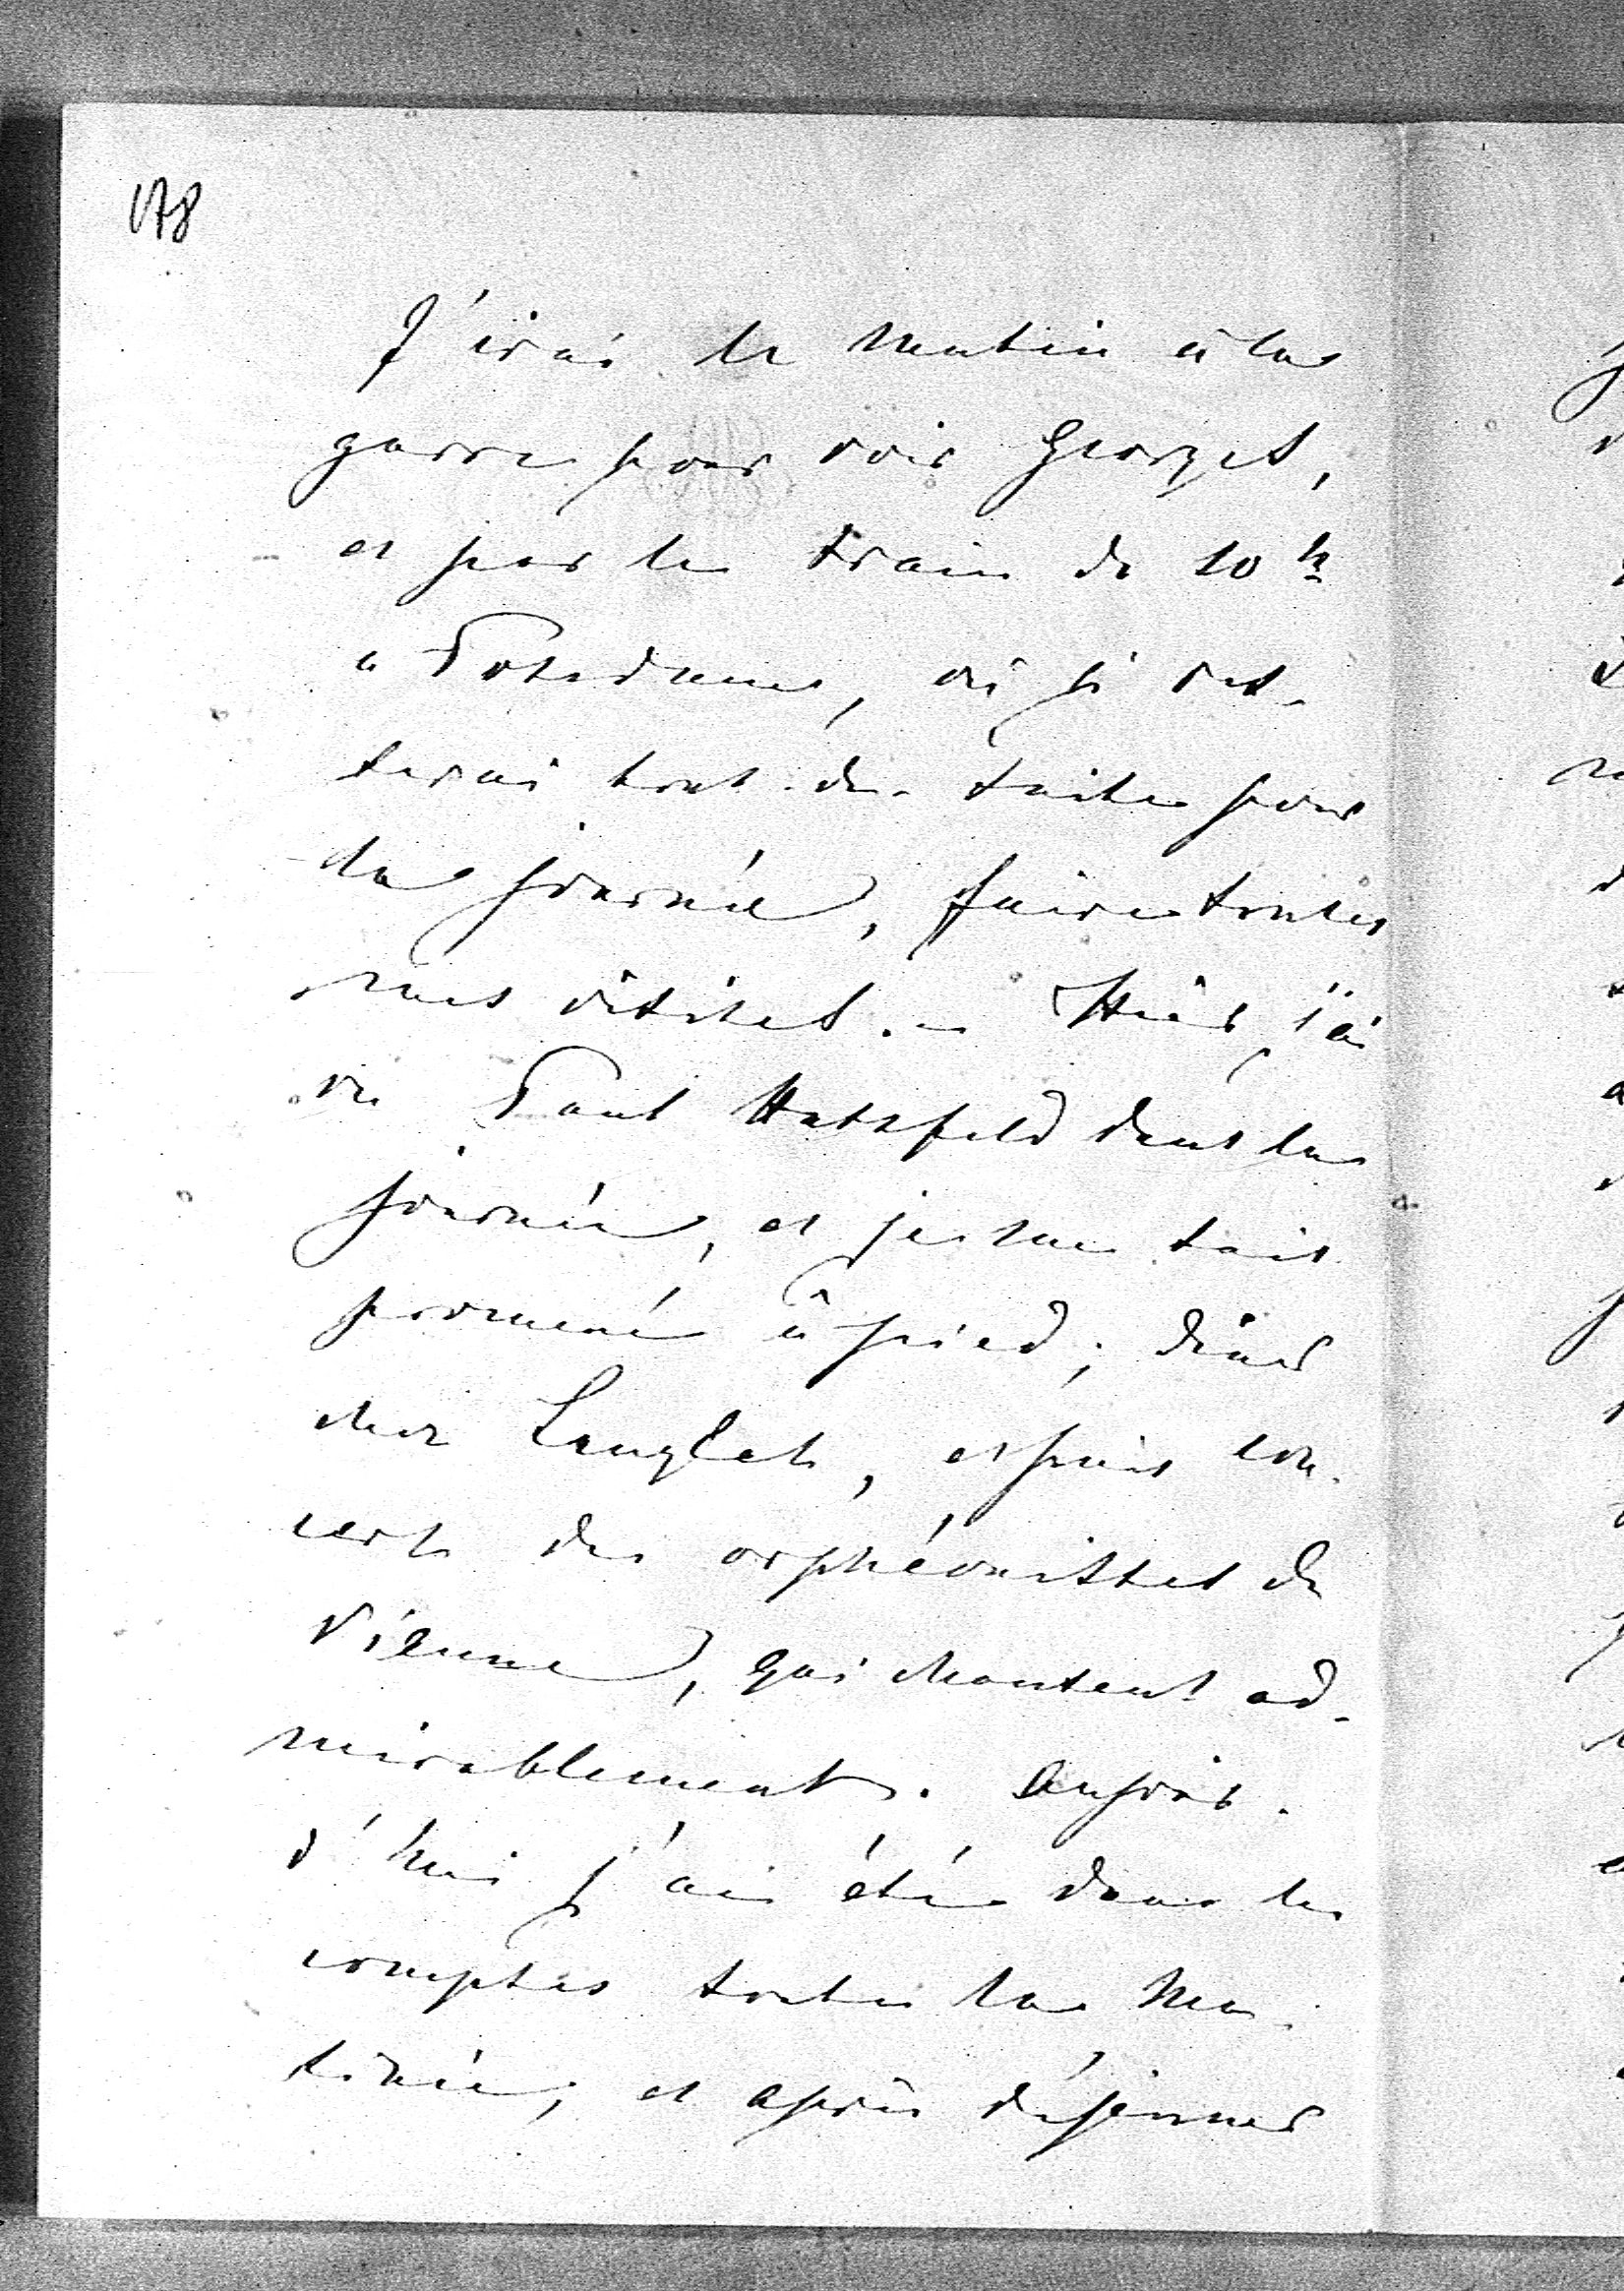 178
J'irai le matin à la
garre pour voir Georges,
et par le train de 10 h
a Potsdam, où je res-
terai tout de suite pour
la journée, faire toutes
mes visites. – Hier j'ai
vu Paul Hatzfeld dans la
journée, et je me suis
promené à pied; diner
chez Langlet, et puis con-
cert des orphéonistes de
Vienne, qui chantent ad-
mirablement. Aujour-
d'hui j'ai été dans les
comptes toute la ma-
tinée; et après déjeuner